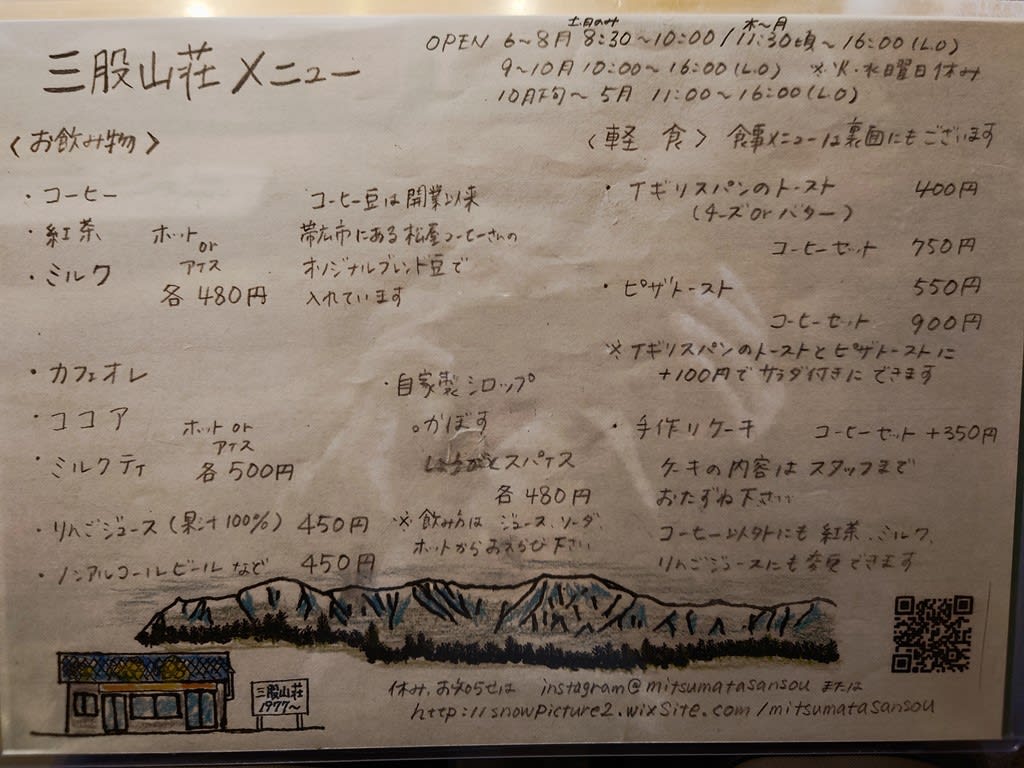 三股山荘メニュー
土.日のみ 木〜月
OPEN 6〜8月 8:30〜10:00/11:30頃〜16:00(L.O)
9〜10月 10:00〜16:00(L.O) ※火・水曜日休み
10月下旬〜5月 11:00〜16:00(L.O)
〈お飲み物〉
・コーヒー
・紅茶 ホット
or
・ミルク アイス
各480円
コーヒー豆は開業以来
帯広市にある松屋コーヒーさんの
オリジナルブレンド豆で
入れています
・カフェオレ
・ココア ホット or
アイス
・ミルクティ 各500円
・りんごジュース(果汁100%) 450円
・ノンアルコールビールなど 450円
・自家製シロップ
。かぼす
とスパイス
各480円
※飲み方は ジュース、ソーダ、
ホットからおえらび下さい
〈軽食〉 食事メニューは裏面にもございます
・イギリスパンのトースト 400円
(チーズorバター)
コーヒーセット 750円
・ピザトースト 550円
コーヒーセット 900円
※イギリスパンのトーストとピザトーストに
+100円でサラダ付きにできます
・手作りケーキ コーヒーセット+350円
ケーキの内容はスタッフまで
おたずね下さい
コーヒー以外にも紅茶、ミルク、
りんごジュースにも変更できます
三股山荘
1977〜
休み、お知らせは instagram@mitsumatasansou または
http://snowpicture2.wixsite.com/mitsumatasansou